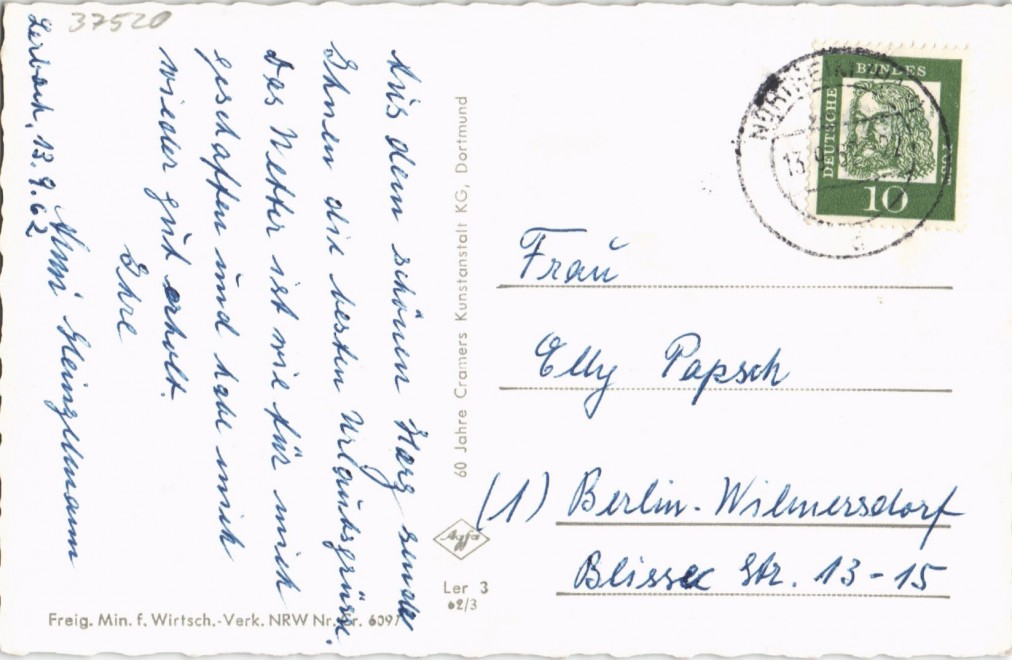 37520
Lerbach, 13.9.62
Aus dem schönen Harz sende
Ihnen die besten Urlaubsgrüsse.
Das Wetter ist wie für mich
geschaffen und habe mich
wieder gut erholt.
Ihre
Anni Heinzelmann
60 Jahre Cramers Kunstanstalt KG, Dortmund
Agfa
Ler 3
62/3
Freig. Min. f. Wirtsch.-Verk. NRW Nr. 6097
DEUTSCHE
BUNDES
POST
10
Frau
Elly Papsch
(1) Berlin-Wilmersdorf
Blisse Str. 13-15